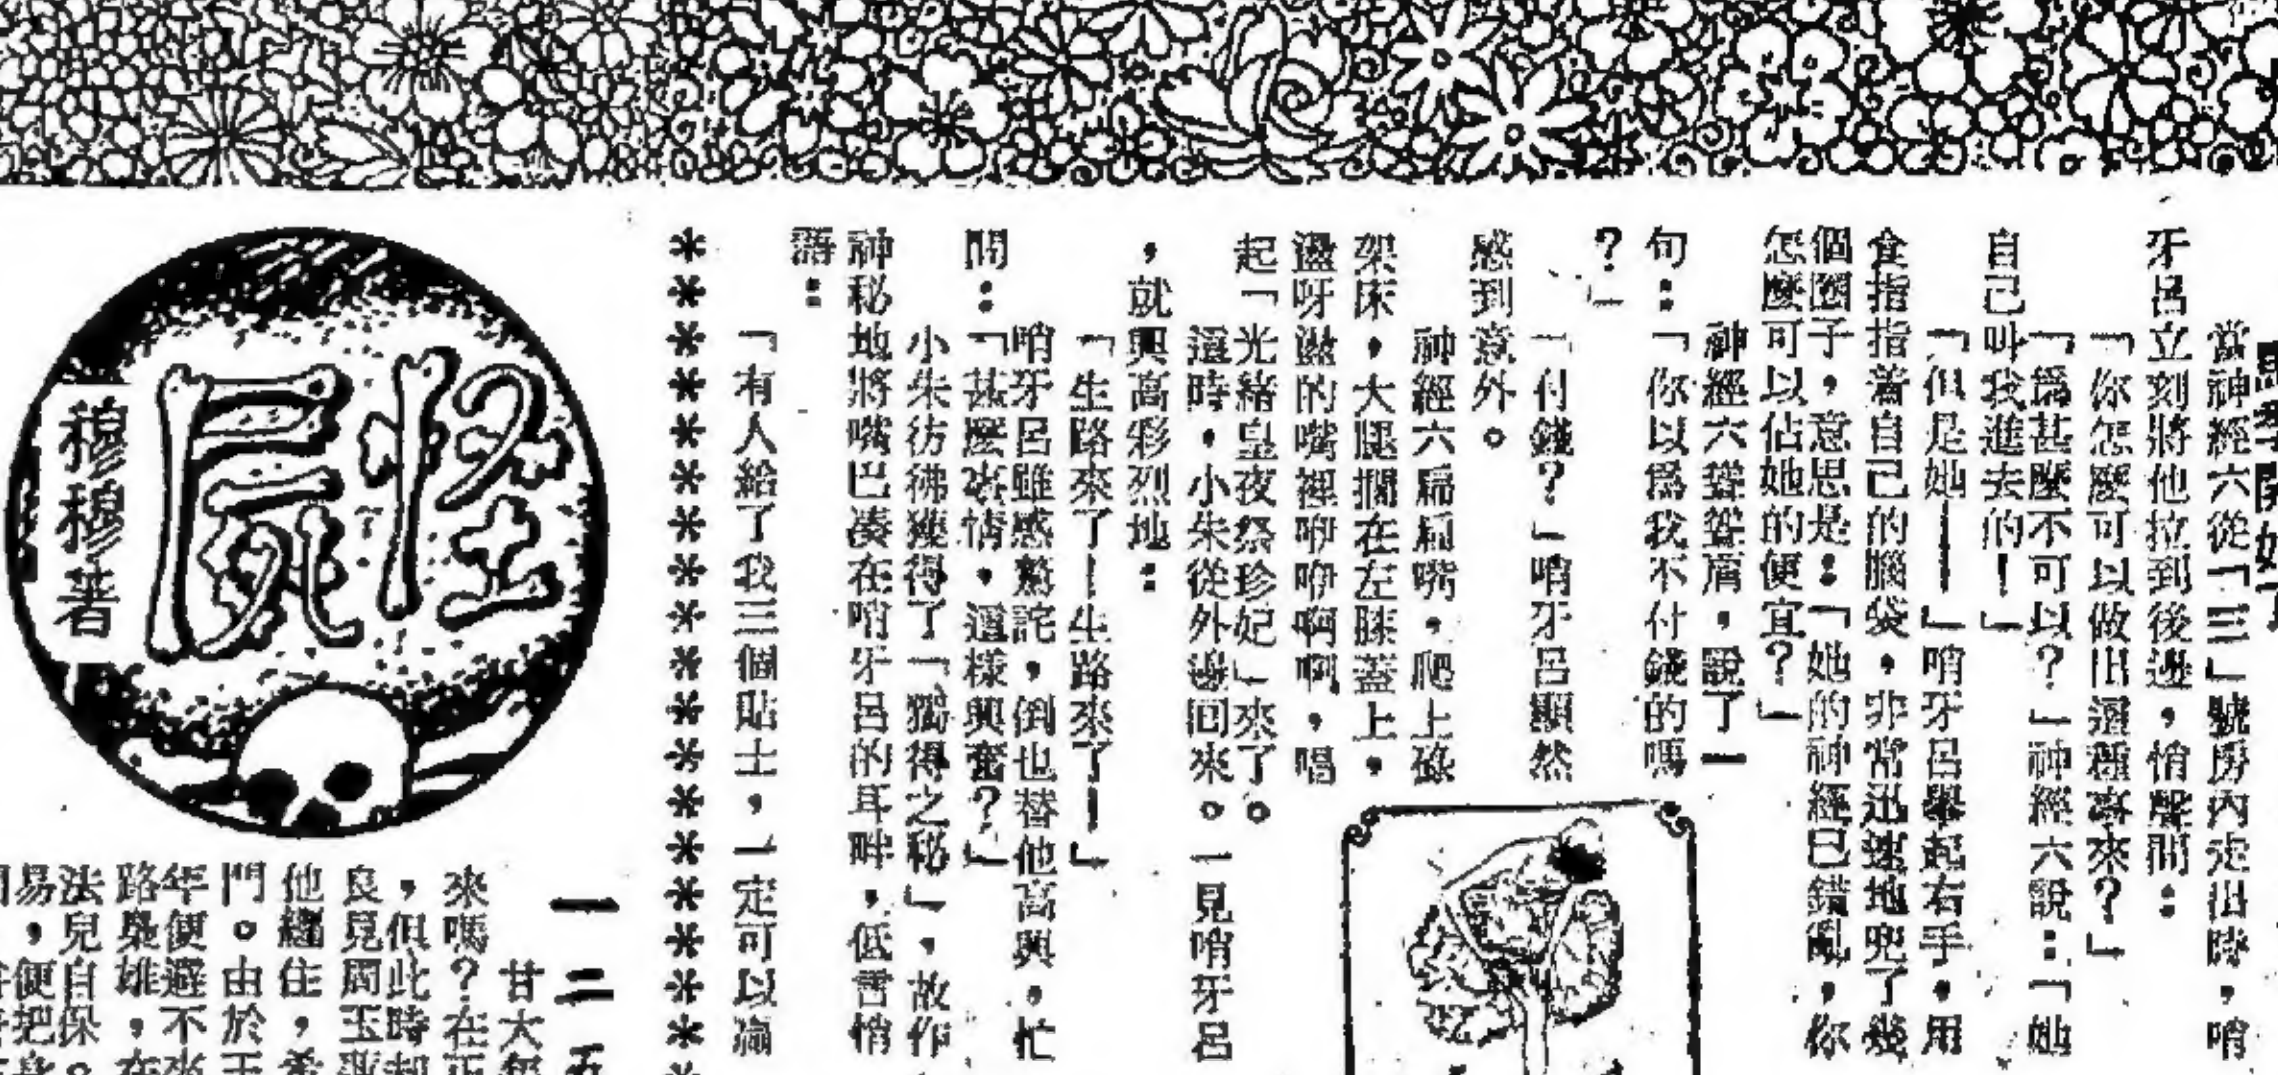 當神經六從「三」號房內走出時，哨
牙呂立刻將他拉到後邊，悄聲問：
「你怎麼可以做出這種事來？」
「爲甚麼不可以？」神經六說：「她
自己叫我進去的！」
「但是她——」哨牙呂舉起右手，用
食指指着自己的腦袋，非常迅速地兜了幾
個圈子，意思是：「她的神經已錯亂，你
怎麼可以佔她的便宜？」
神經六聳聳肩，說了一
句：「你以爲我不付錢的嗎
？」
「付錢？」哨牙呂顯然
感到意外。
神經六扁扁嘴，爬上碌
架床，大腿擱在左膝蓋上，
盪呀盪的嘴裡咿咿啊啊，唱
起「光緒皇夜祭珍妃」來了。
這時，小朱從外邊回來。一見哨牙呂
，就興高彩烈地：
「生路來了！生路來了！」
哨牙呂雖感驚詫，倒也替他高興，忙
問：「甚麼事情，這樣興奮？」
小朱彷彿獲得了「獨得之秘」，故作
神秘地將嘴巴凑在哨牙呂的耳畔，低言悄
語：
「有人給了我三個貼士，一定可以贏
＊＊＊＊＊＊＊＊＊＊＊＊＊＊＊＊＊＊
怪屍
穆穆著
一二五
甘大
來嗎？在正
，但此時却
良見周玉
他纏住，
門。由於王
年便避不
路梟雄，在
法兒自保。
易，便把